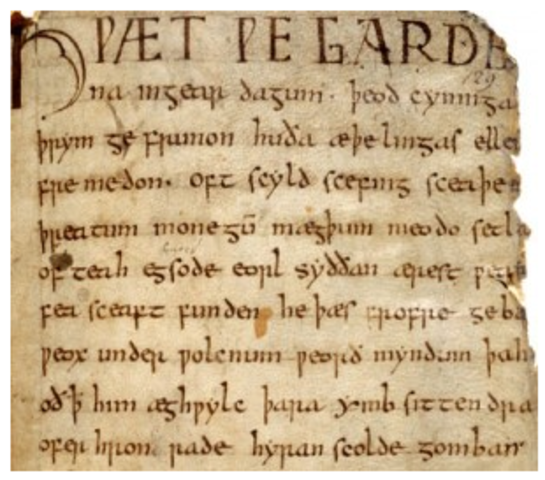 HǷÆT ǷE GARDE
129
na ingear dagum. þeod cyninga
þrym ge frunon huða æþelingas elle
fremedon. oft scyld scefing sceaþe
þreatum monegū mægþum meodo setla
of teah egsode eorl syððan ærest ƿear
fea sceaft funden he þæs frofre geba
ƿeox under ƿolcnum ƿeorð myndum þah
oð ꝥ him æghƿylc þara ymb sittendra
ofer hron rade hyran scolde gomban